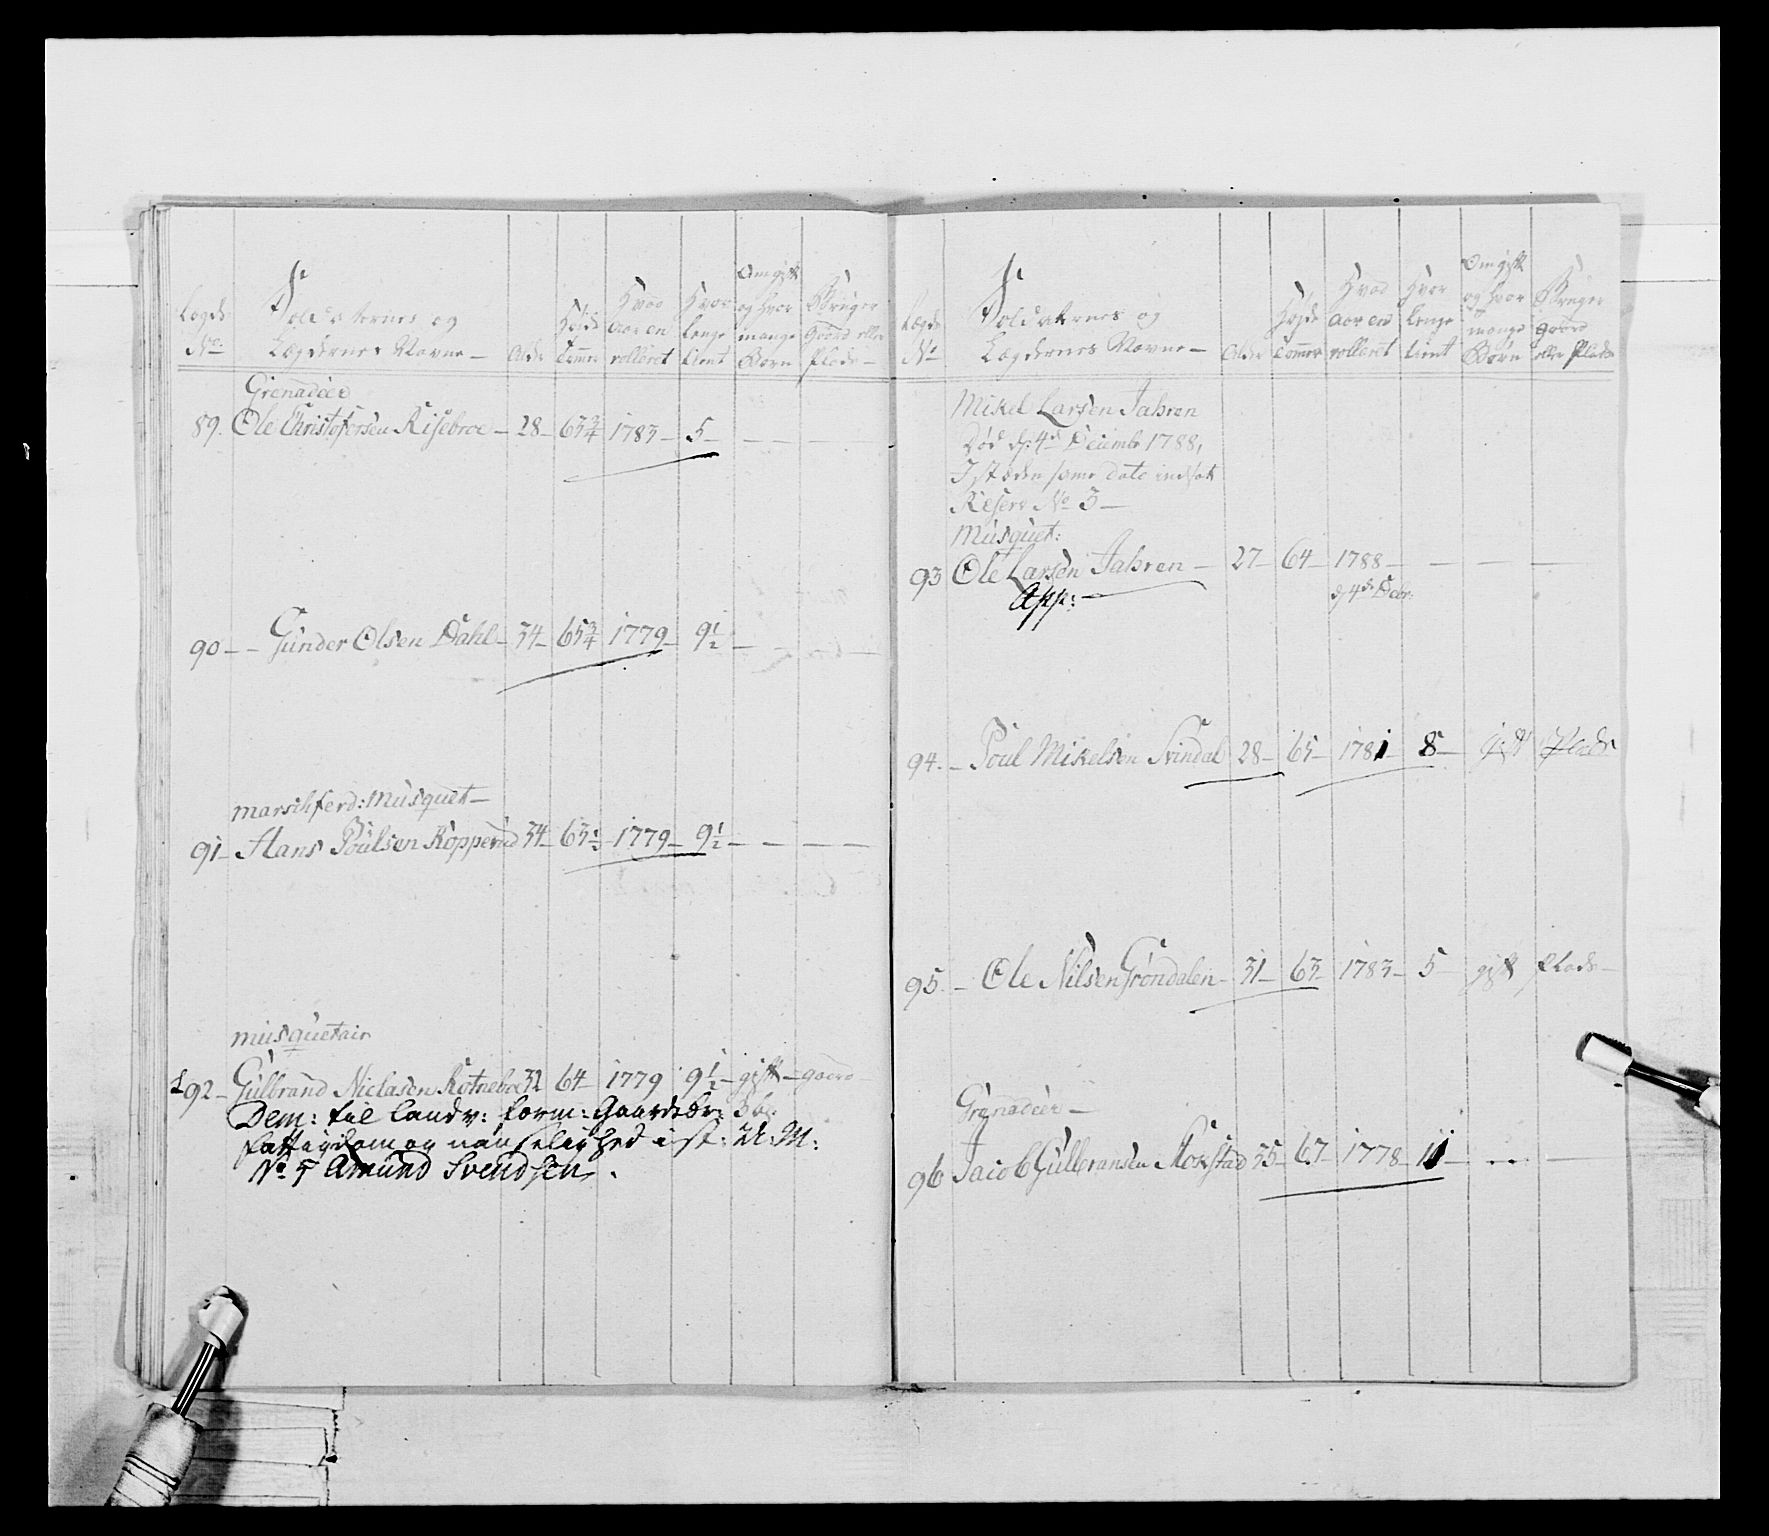 Legds No
Soldaternes og Lægdernes Navne —
Alder
Høide Tommer
Hvad Aar en rolleret
Hvor lenge tient
Om gift og hvor mange Børn
Bruger Gaard eller Plads —
Grenadeer
89. Ole Christofersen Risebroe — 28 — 63 3/4 1783 — 5 — — —
90 — — Gunder Olsen Dahl — 34 — 65 3/4 1779 — 9 1/2 — — —
marschferd: Musquet —
91 — Hans Poulsen Kopperud 34 — 63 1/2 — 1779 — 9 1/2 — — — —
musquetair
92 — Gulbrand Niclasen Kotneboe 32 64 — 1779 9 1/2 — gift — gaard —
Dem: til landv: form: Gaardebr:
fattigdom og uanselighed i st: U: M:
No 5 Amund Svendsen .
Lægds No
Soldaternes og Lægdernes Navne —
Alder
Høyde Tommer
Hvad Aar en rolleret
Hvor lenge tient
Om gift og hvor mange Børn
Bruger gaard eller Plads
Mikel Larsen Jahren
Død d: 4de Decemb 1788,
I stæden same dato indsat
Reserv No 3 —
Musquet:
93 Ole Larsen Jahren — 27 — 64 — 1788 — — — —
App: — d 4de Debr:
94. — Poul Mikelsen Svindal 28 — 65 — 1781 — 8 — gift Plads
95. — Ole Nilsen Grøndalen — 31 — 63 — 1783 — 5 — gift plads —
Grenadeer —
96 Jacob Gulbransen Mokstad 35 — 67 — 1778 — 11 — — —